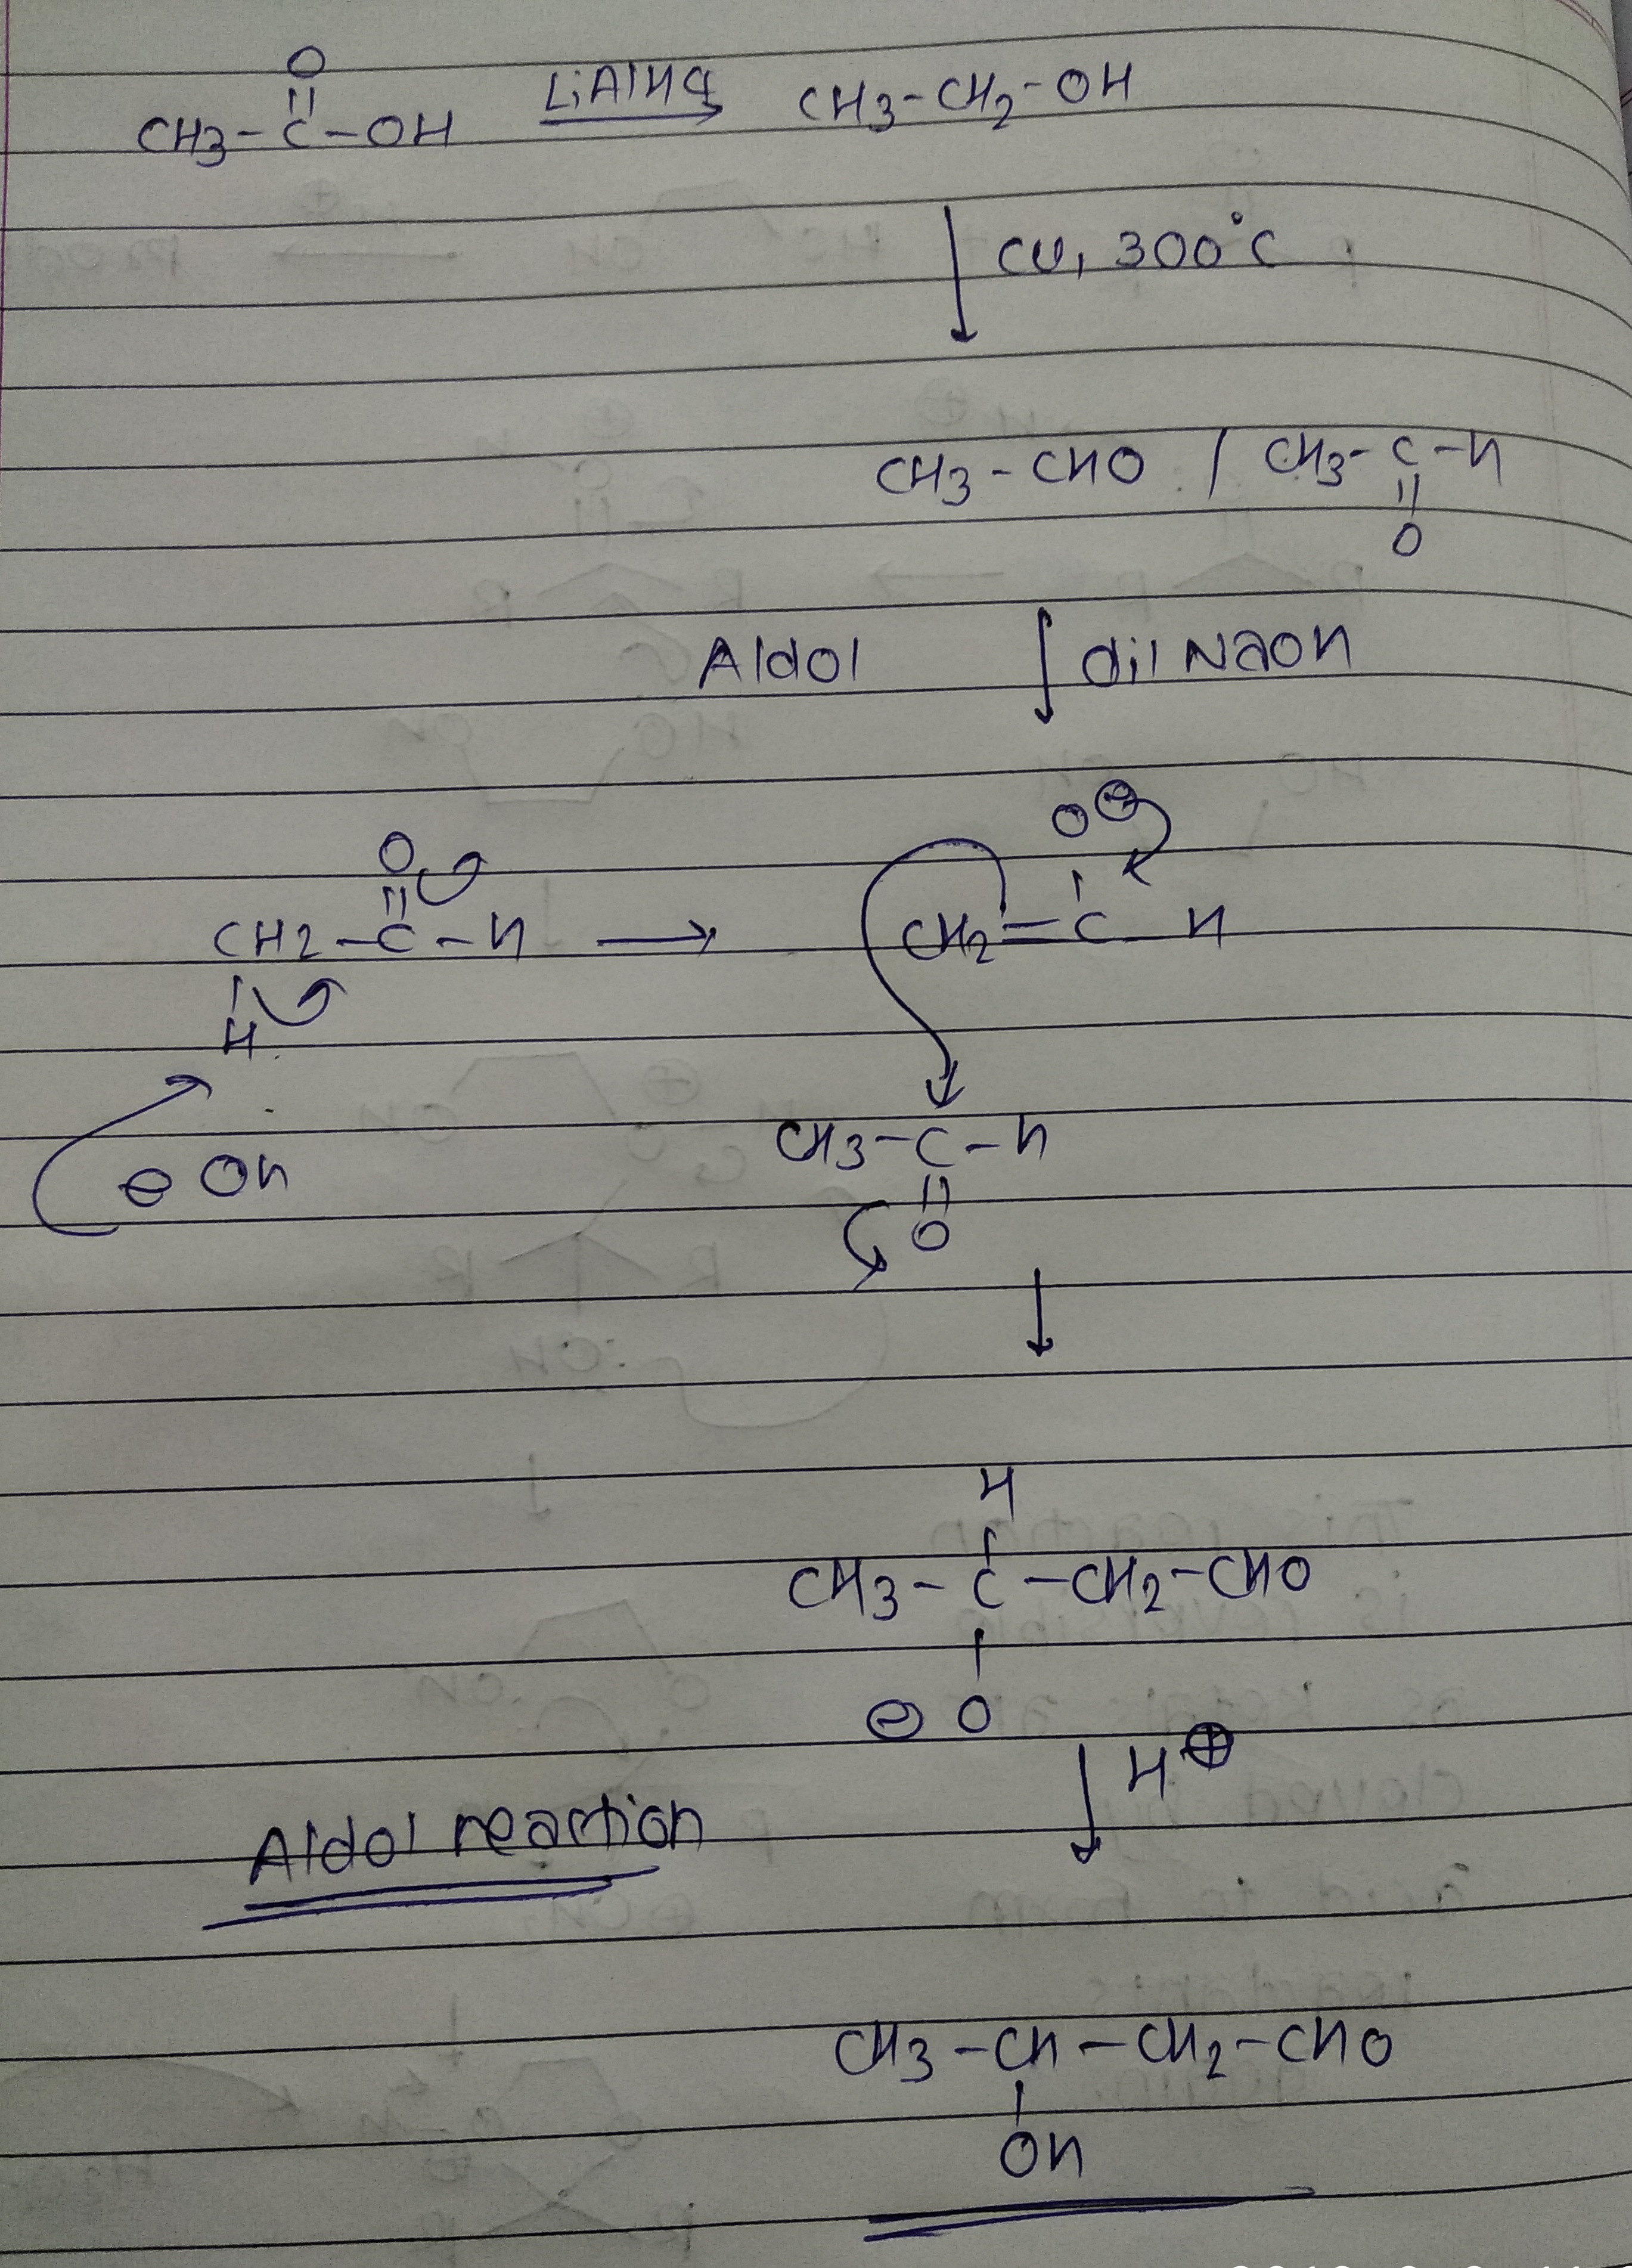 O
||
CH3-C-OH LiAlH4 → CH3-CH2-OH
↓ Cu, 300°C
CH3-CHO / CH3-C-H
||
O
Aldol ↓ dil NaOH
O O⊖
|| |
CH2-C-H → CH2=C H
|
H
⊖OH
CH3-C-H
||
O
↓
H
|
CH3-C-CH2-CHO
|
⊖O
↓ H⊕
Aldol reaction
CH3-CH-CH2-CHO
|
OH